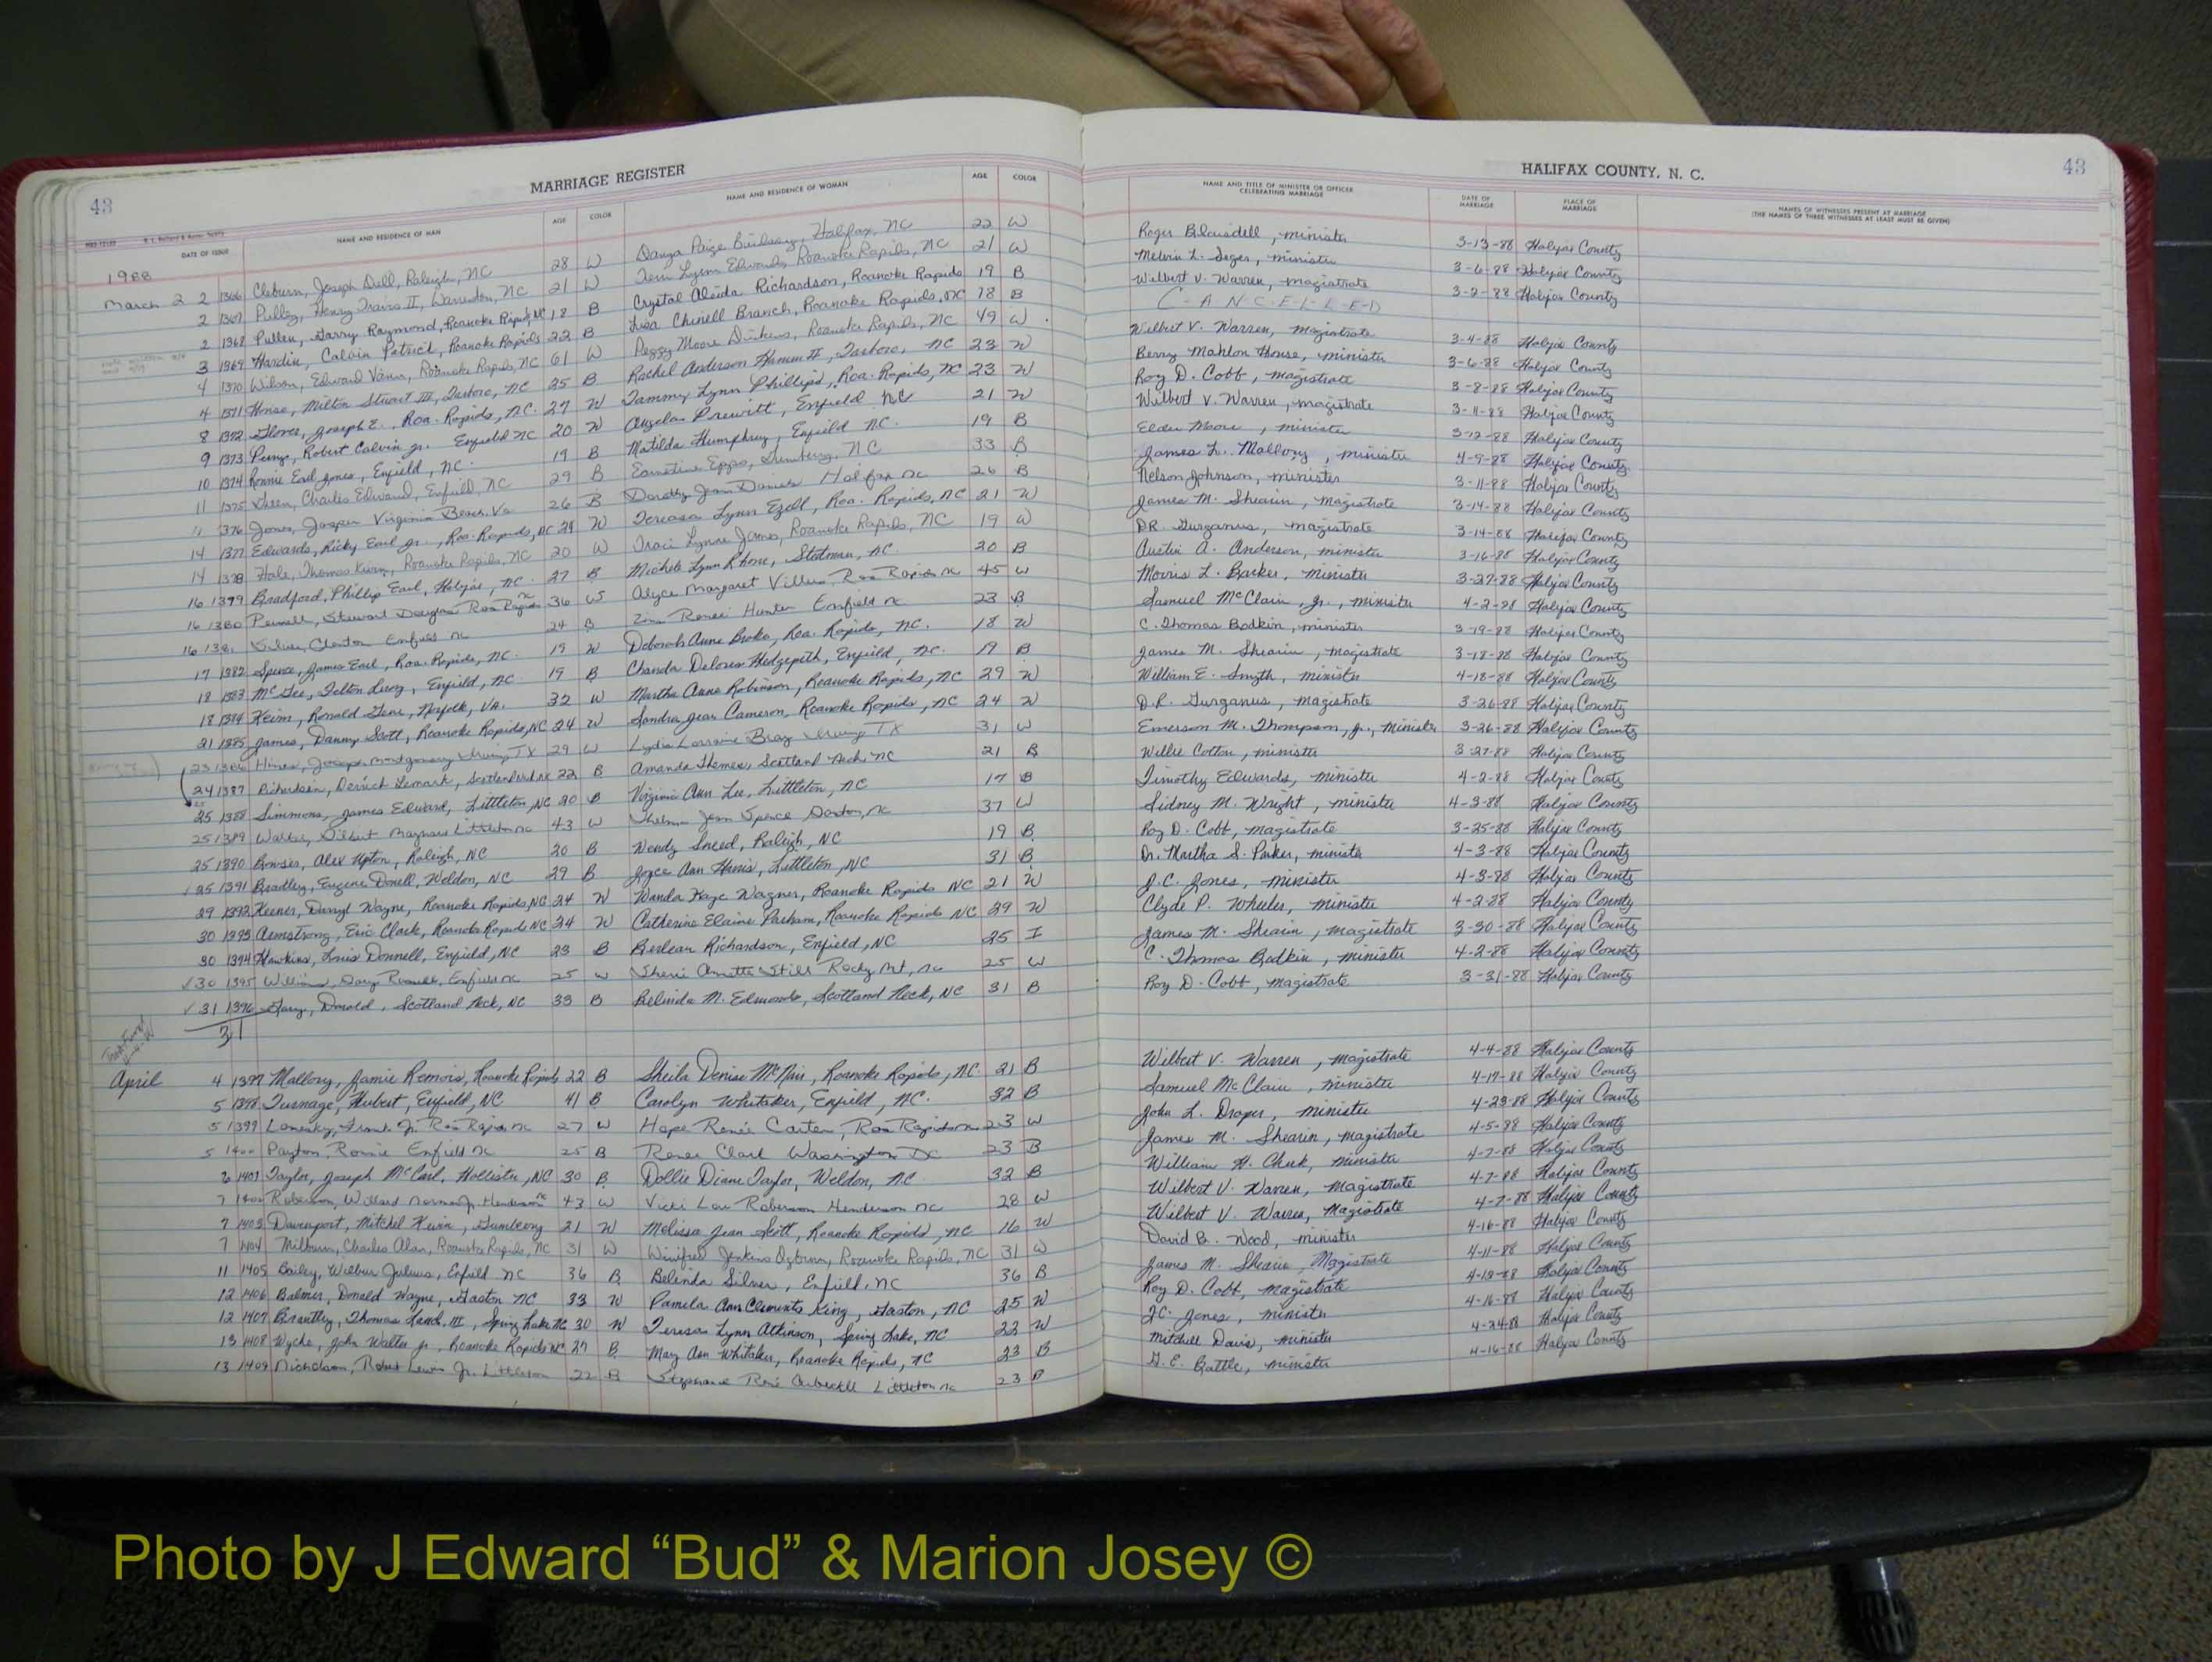 43
MARRIAGE REGISTER
HALIFAX COUNTY, N. C.
43
DATE OF ISSUE
NAME AND RESIDENCE OF MAN
AGE
COLOR
NAME AND RESIDENCE OF WOMAN
AGE
COLOR
NAME AND TITLE OF MINISTER OR OFFICER CELEBRATING MARRIAGE
DATE OF MARRIAGE
PLACE OF MARRIAGE
NAMES OF WITNESSES PRESENT AT MARRIAGE
(THE NAMES OF THREE WITNESSES AT LEAST MUST BE GIVEN)
1988
March 2 2 1366 Cleburn, Joseph Dell, Raleigh, NC 28 W Danya Paige Halifax, NC 22 W Roger Blaisdell, minister 3-13-88 Halifax County
2 1367 Pulley, Henry Travis II, Warrenton, NC 21 W Terri Lynn Edwards Roanoke Rapids, NC 21 W Melvin L. minister 3-6-88 Halifax County
2 1368 Pullen, Garry Raymond, Roanoke Rapids, NC 18 B Crystal Aleida Richardson, Roanoke Rapids 19 B Wilbert V. Warren, magistrate 3-2-88 Halifax County
3 1369 Hardin, Calvin Patrick, Roanoke Rapids 22 B Lisa Chinell Branch, Roanoke Rapids, NC 18 B C-A-N-C-E-L-L-E-D
4 1370 Wilson, Edward Roanoke Rapids, NC 61 W Peggy Moore Dickens, Roanoke Rapids, NC 49 W Wilbert V. Warren, magistrate 3-4-88 Halifax County
4 1371 House, Milton Stuart III, NC 25 B Rachel Anderson NC 23 W Berry Mahlon House, minister 3-6-88 Halifax County
8 1372 Glover, Joseph E. Roa. Rapids, N.C. 27 W Tammy Lynn Phillips, Roa. Rapids, NC 23 W Roy D. Cobb, magistrate 3-8-88 Halifax County
9 1373 Robert Calvin Jr. Enfield NC 20 W Angela Prewitt, Enfield NC 21 W Wilbert V. Warren, magistrate 3-11-88 Halifax County
10 1374 Ronnie Earl Jones, Enfield, NC. 19 B Matilda Humphrey, Enfield NC. 19 B Elder Moore, minister 3-12-88 Halifax County
11 1375 Green, Charles Edward, Enfield, NC 29 B Earnestine Epps, NC 33 B James L. Mallory, minister 4-9-88 Halifax County
11 1376 Jones, Jasper Virginia Beach, Va 26 B Dorothy Jean Daniels Halifax NC 26 B Nelson Johnson, minister 3-11-88 Halifax County
14 1377 Edwards, Ricky Earl Jr., Roa. Rapids, NC 28 W Tereasa Lynn Ezell, Roa. Rapids, NC 21 W James M. Shearin, magistrate 3-14-88 Halifax County
14 1378 Hale, Thomas Kevin, Roanoke Rapids, NC 20 W Traci Lynne James, Roanoke Rapids, NC 19 W D.R. Gurganus, magistrate 3-14-88 Halifax County
16 1379 Bradford, Phillip Earl, Halifax, NC. 27 B Michele Lynn Rhone, NC 20 B Austin A. Anderson, minister 3-16-88 Halifax County
16 1380 Stewart Douglas Roa Rapids NC 36 W Alyce Margaret Roa Rapids NC 45 W Morris L. Barker, minister 3-27-88 Halifax County
16 1381 Silver, Clanton Enfield NC 24 B Renee Hunter Enfield NC 23 B Samuel McClain, Jr., minister 4-2-88 Halifax County
17 1382 Spence, James Earl, Roa. Rapids, NC. 19 W Deborah Anne Roa. Rapids, NC. 18 W C. Thomas Bodkin, minister 3-19-88 Halifax County
18 1383 McGee, Felton Leroy, Enfield, NC. 19 B Chanda Delores Hedgepeth, Enfield, NC. 19 B James M. Shearin, magistrate 3-18-88 Halifax County
18 1384 Keim, Ronald Gene, Norfolk, VA. 32 W Martha Anne Robinson, Roanoke Rapids, NC 29 W William E. Smyth, minister 4-18-88 Halifax County
21 1385 James, Danny Scott, Roanoke Rapids, NC 24 W Sandra Jean Cameron, Roanoke Rapids, NC 24 W D.R. Gurganus, magistrate 3-26-88 Halifax County
23 1386 Hines, Joseph Montgomery Irving TX 29 W Lydia Lorraine Bray Irving TX 31 W Emerson M. Thompson, Jr., Minister 3-26-88 Halifax County
24 1387 Richardson, Derrick Lemark, Scotland Neck, NC 22 B Amanda Scotland Neck NC 21 B Willie Cotton, minister 3-27-88 Halifax County
25 1388 Simmons, James Edward, Littleton, NC 20 B Virginia Ann Lee, Littleton, NC 17 B Timothy Edwards, minister 4-2-88 Halifax County
25 1389 Walker, Gilbert Littleton NC 43 W Thelma Jean Spence Gaston, NC 37 W Sidney M. Wright, minister 4-3-88 Halifax County
25 1390 Bowser, Alex Upton, Raleigh, NC 20 B Wendy Sneed, Raleigh, NC 19 B Roy D. Cobb, magistrate 3-25-88 Halifax County
25 1391 Bradley, Eugene Donell, Weldon, NC 29 B Joyce Ann Harris, Littleton, NC 31 B Dr. Martha S. Parker, minister 4-3-88 Halifax County
29 1392 Keener, Darryl Wayne, Roanoke Rapids, NC 24 W Wanda Kaye Wagner, Roanoke Rapids NC 21 W J.C. Jones, minister 4-3-88 Halifax County
30 1393 Armstrong, Eric Clark, Roanoke Rapids NC 24 W Catherine Elaine Parham, Roanoke Rapids NC 29 W Clyde P. Wheeler, minister 4-2-88 Halifax County
30 1394 Hawkins, Louis Donnell, Enfield, NC 23 B Berlean Richardson, Enfield, NC 25 I James M. Shearin, magistrate 3-30-88 Halifax County
30 1395 Enfield NC 25 W Sherri Annette Still Rocky Mt, NC 25 W C. Thomas Bodkin, minister 4-2-88 Halifax County
31 1396 Gary, Donald, Scotland Neck, NC 33 B Belinda M. Edmonds, Scotland Neck, NC 31 B Roy D. Cobb, magistrate 3-31-88 Halifax County
31
April 4 1397 Mallory, Jamie Remois, Roanoke Rapids 22 B Sheila Denise McNair, Roanoke Rapids, NC. 21 B Wilbert V. Warren, magistrate 4-4-88 Halifax County
5 1398 Turnage, Hubert, Enfield, NC 41 B Carolyn Whitaker, Enfield, NC. 32 B Samuel McClain, minister 4-17-88 Halifax County
5 1399 Frank Jr. Roa Rapids NC 27 W Hope Renée Carter, Roa Rapids NC 23 W John L. Draper, minister 4-23-88 Halifax County
5 1400 Payton, Ronnie Enfield NC 25 B Renee Clark Washington DC 23 B James M. Shearin, magistrate 4-5-88 Halifax County
6 1401 Taylor, Joseph McCarl, Hollister, NC 30 B Dollie Diane Taylor, Weldon, NC. 32 B William H. Cheek, minister 4-7-88 Halifax County
7 1402 Roberson, Willard Norman Jr. Henderson NC 43 W Vicki Lou Roberson Henderson NC 28 W Wilbert V. Warren, Magistrate 4-7-88 Halifax County
7 1403 Davenport, Mitchel Kevin, 21 W Melissa Jean Scott, Roanoke Rapids, NC 16 W Wilbert V. Warren, Magistrate 4-7-88 Halifax County
7 1404 Milburn, Charles Alan, Roanoke Rapids, NC 31 W Winifred Jenkins Ogburn, Roanoke Rapids, NC 31 W David B. Wood, minister 4-16-88 Halifax County
11 1405 Bailey, Wilbur Julius, Enfield NC 36 B Belinda Silver, Enfield, NC 36 B James M. Shearin, Magistrate 4-11-88 Halifax County
12 1406 Balmer, Donald Wayne, Gaston NC 33 W Pamela Ann Clements King, Gaston, NC 25 W Roy D. Cobb, magistrate Halifax County
12 1407 Brantley, Thomas III, Spring Lake NC 30 W Teresa Lynn Atkinson, Spring Lake, NC 22 W J.C. Jones, minister 4-16-88 Halifax County
13 1408 Wyche, John Walter Jr, Roanoke Rapids NC 27 B Mary Ann Whitaker, Roanoke Rapids, NC 23 B Mitchell Davis, minister 4-24-88 Halifax County
13 1409 Nicholson, Robert Lewis Jr. Littleton 22 B Stephanie René Arbuckle Littleton NC 23 B G.E. Battle, minister 4-16-88 Halifax County
Photo by J Edward “Bud” & Marion Josey ©